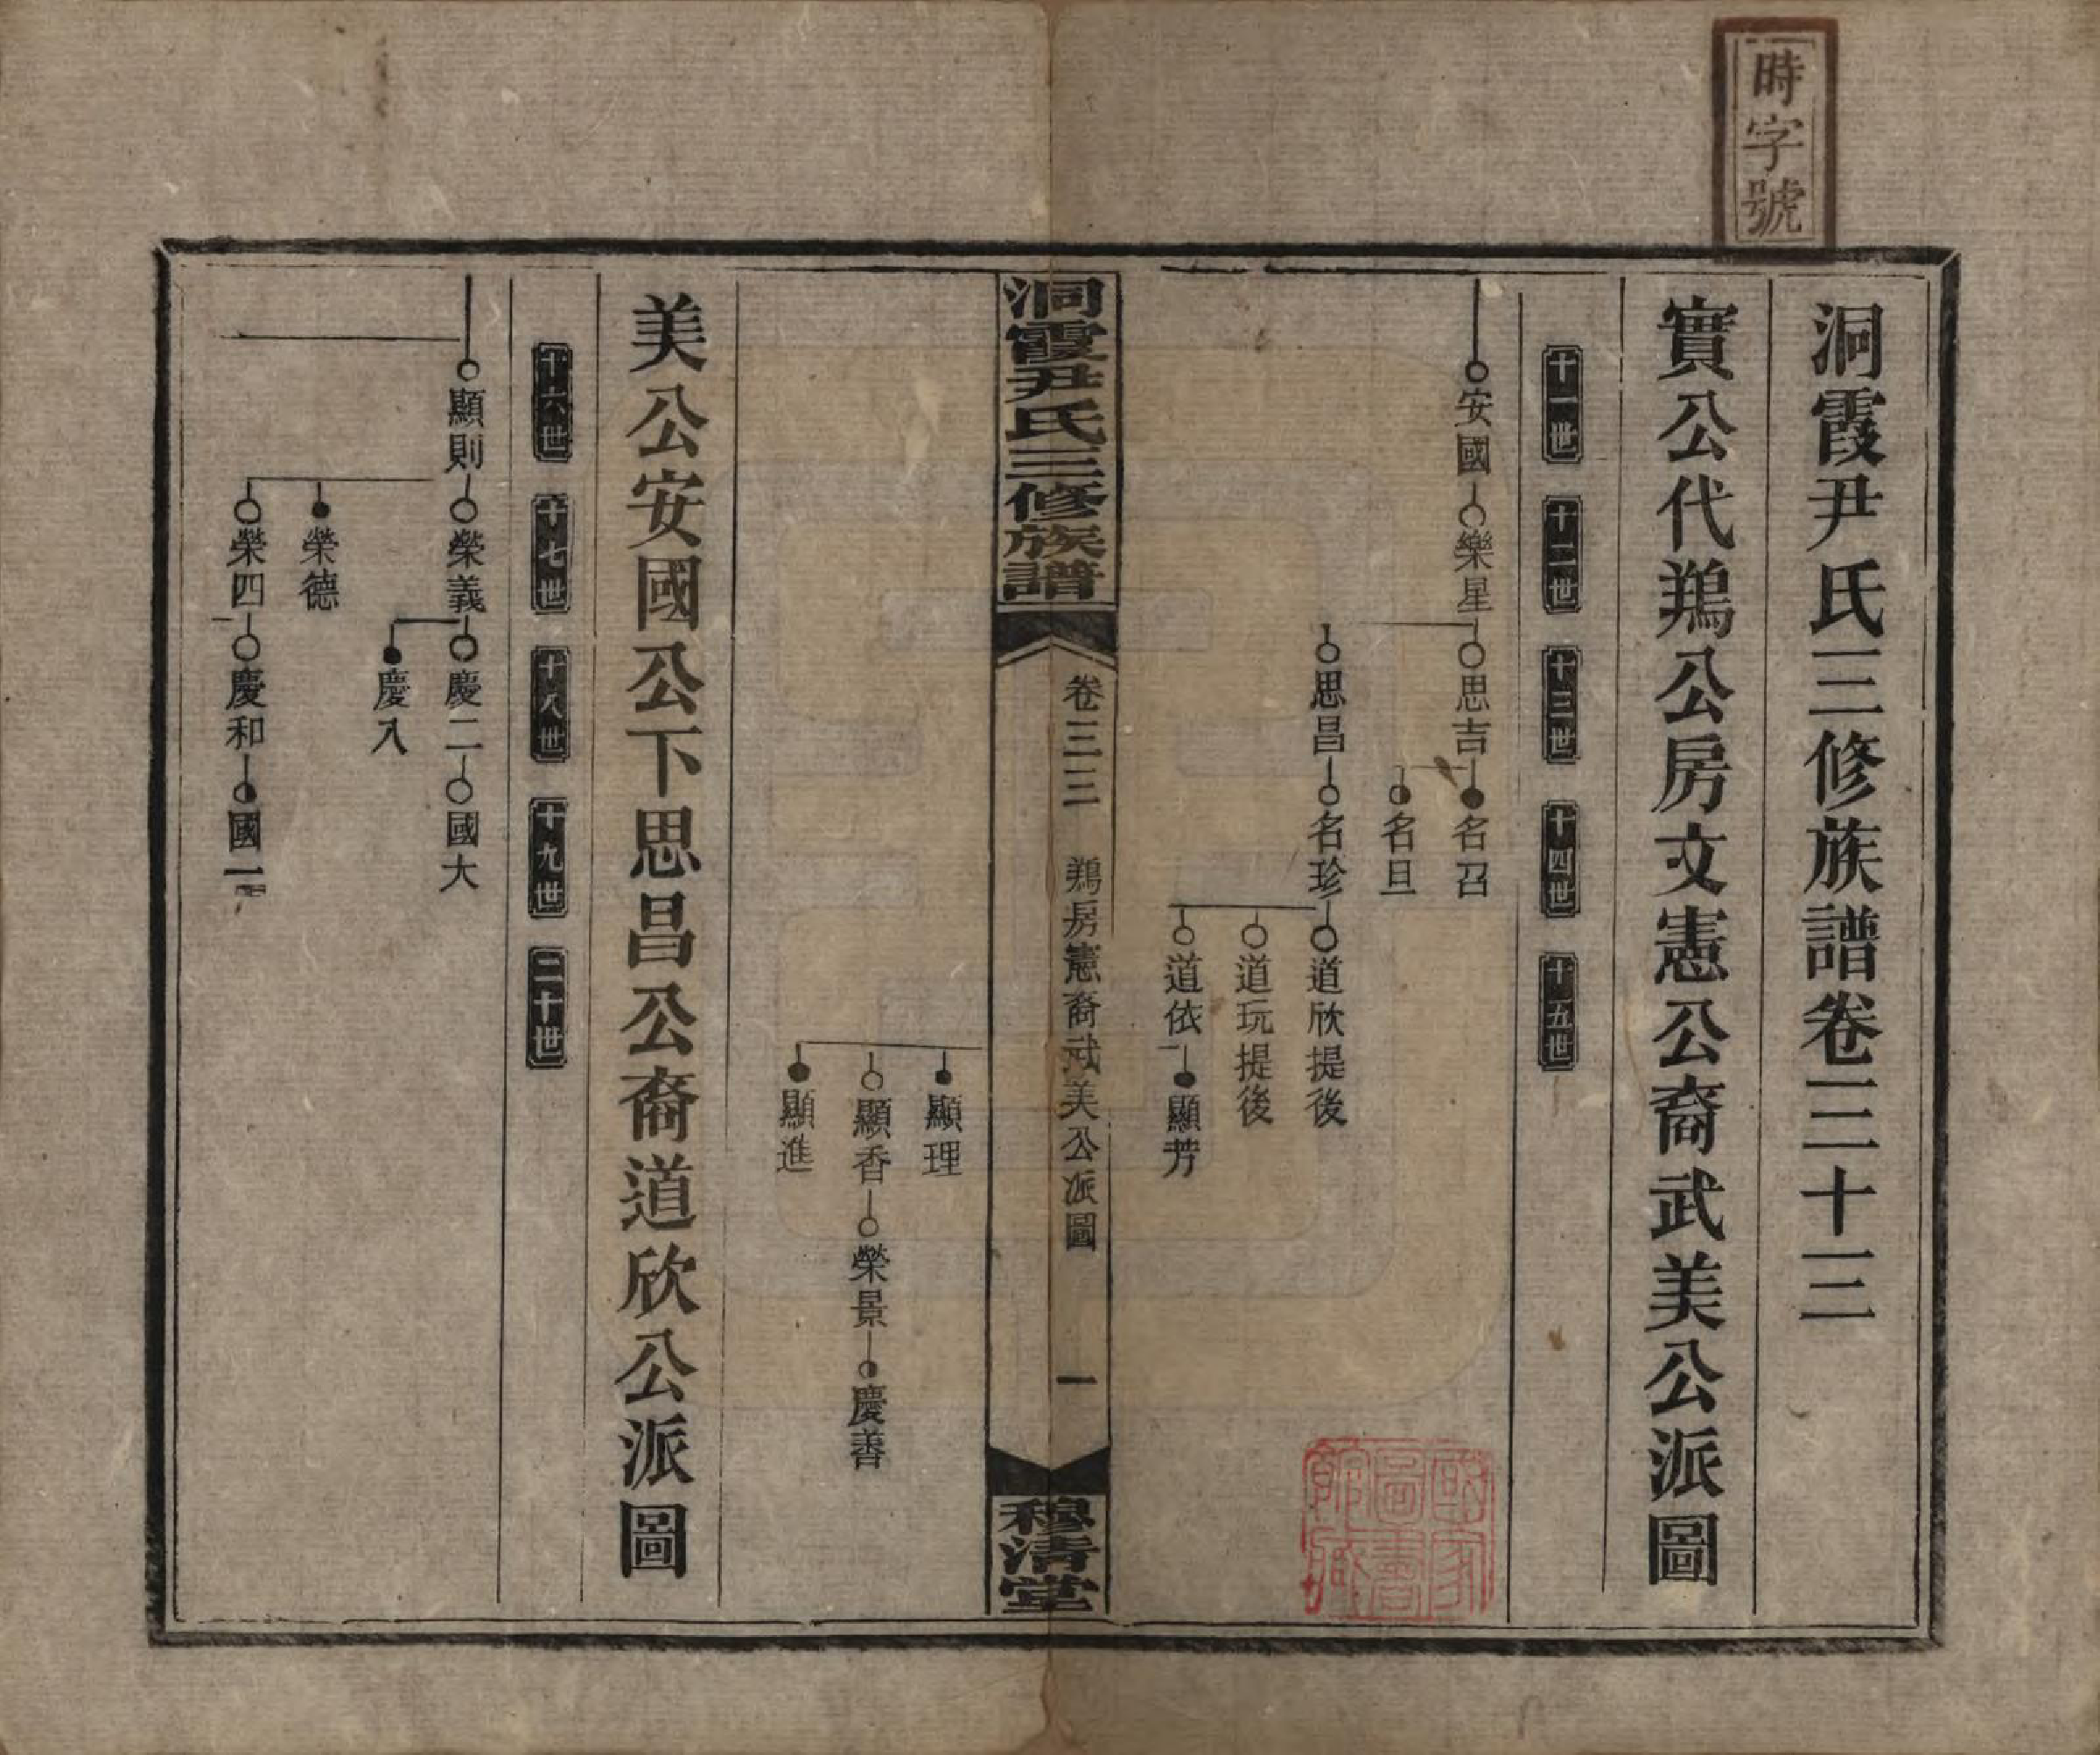 時字號
洞霞尹氏三修族譜卷三十三
實公代鷄公房文憲公裔武美公派圖
十一世 十二世 十三世 十四世 十五世
安國 樂星 思吉 名召
名旦
思昌 名珍 道欣提後
道玩提後
道依 顯芳
洞霞尹氏三修族譜 卷三三 鷄房憲裔武美公派圖 一 穆清堂
顯理
顯香 榮景 慶善
顯進
美公安國公下思昌公裔道欣公派圖
十六世 十七世 十八世 十九世 二十世
顯則 榮義 慶二 國大
慶入
榮德
榮四 慶和 國一
國家圖書館藏